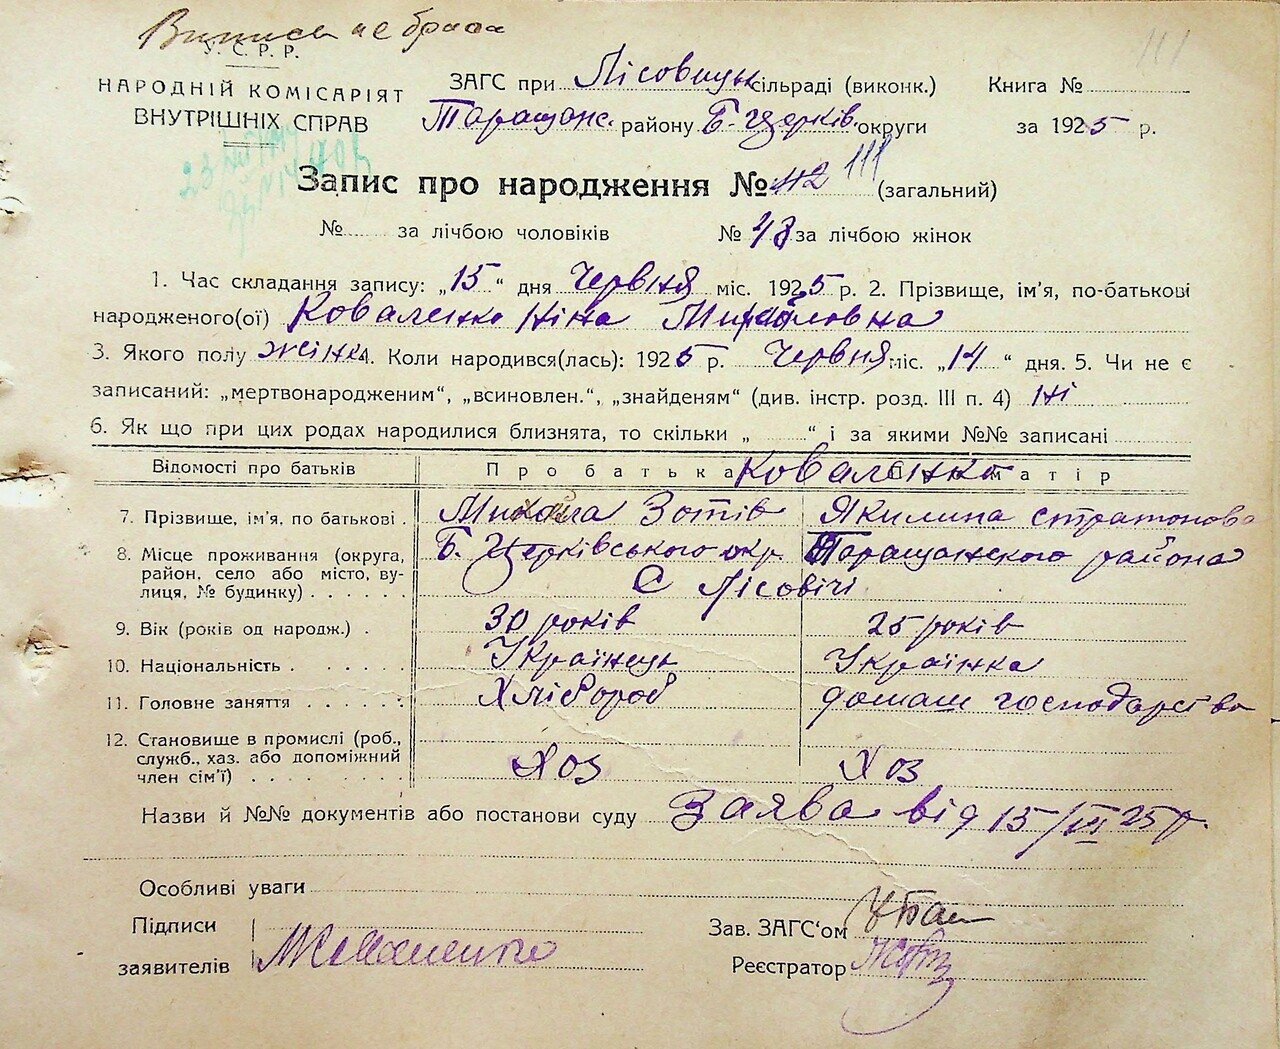 Випись не брала
У.С.Р.Р.
НАРОДНІЙ КОМІСАРІЯТ
ВНУТРІШНІХ СПРАВ
ЗАГС при Лісовицьк сільраді (виконк.)
Таращанс. району Б-Церків. округи
Книга №
за 1925 р.
111
Запис про народження № 112 111 (загальний)
№ за лічбою чоловіків № 48 за лічбою жінок
1. Час складання запису: „15“ дня Червня міс. 1925 р. 2. Прізвище, ім'я, по-батькові
народженого(ої) Коваленко Ніна Михайловна
3. Якого полу жінка 4. Коли народився(лась): 1925 р. Червня міс. „14“ дня. 5. Чи не є
записаний: „мертвонародженим“, „всиновлен.“, „знайденям“ (див. інстр. розд. III п. 4) Ні
6. Як що при цих родах народилися близнята, то скільки „ “ і за якими №№ записані
Відомості про батьків Про батька Коваленко матір
7. Прізвище, ім'я, по батькові . Михайла Зотів Якилина Стратонова
8. Місце проживання (округа, Б. Церківського окр. Таращанского района
район, село або місто, ву-
лиця, № будинку) . . . . . . С Лісовічі
9. Вік (років од народж.) . 30 років 25 років
10. Національність . . . . . . Українець Українка
11. Головне заняття . . . . . . Хлібороб домаш господарство
12. Становище в промислі (роб.,
служб., хаз. або допоміжний
член сім'ї) . . . . . . . Хоз Хоз
Назви й №№ документів або постанови суду Заява від 15/VI 25 р.
Особливі уваги
Підписи
заявителів МКоваленко
Зав. ЗАГС'ом
Реєстратор